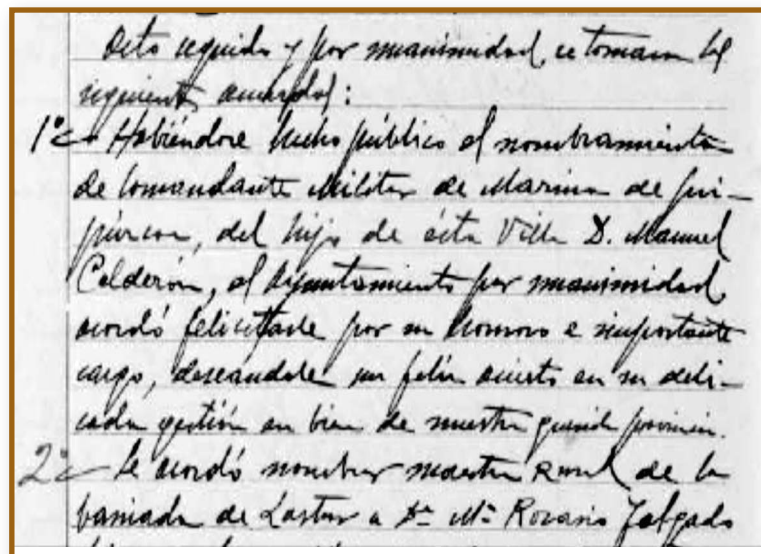 Acto seguido y por unanimidad, se toman los
siguientes acuerdos:
1º Habiéndose hecho público el nombramiento
de Comandante Militar de Marina de Gui-
púzcoa, del hijo de ésta Villa D. Manuel
Calderón, el Ayuntamiento por unanimidad
acordó felicitarle por su honroso e importante
cargo, deseándole un feliz acierto en su deli-
cada gestión en bien de nuestra querida provincia.
2º Se acordó nombrar maestra Rural de la
barriada de Lastur a Dª Mª Rosario Salgado